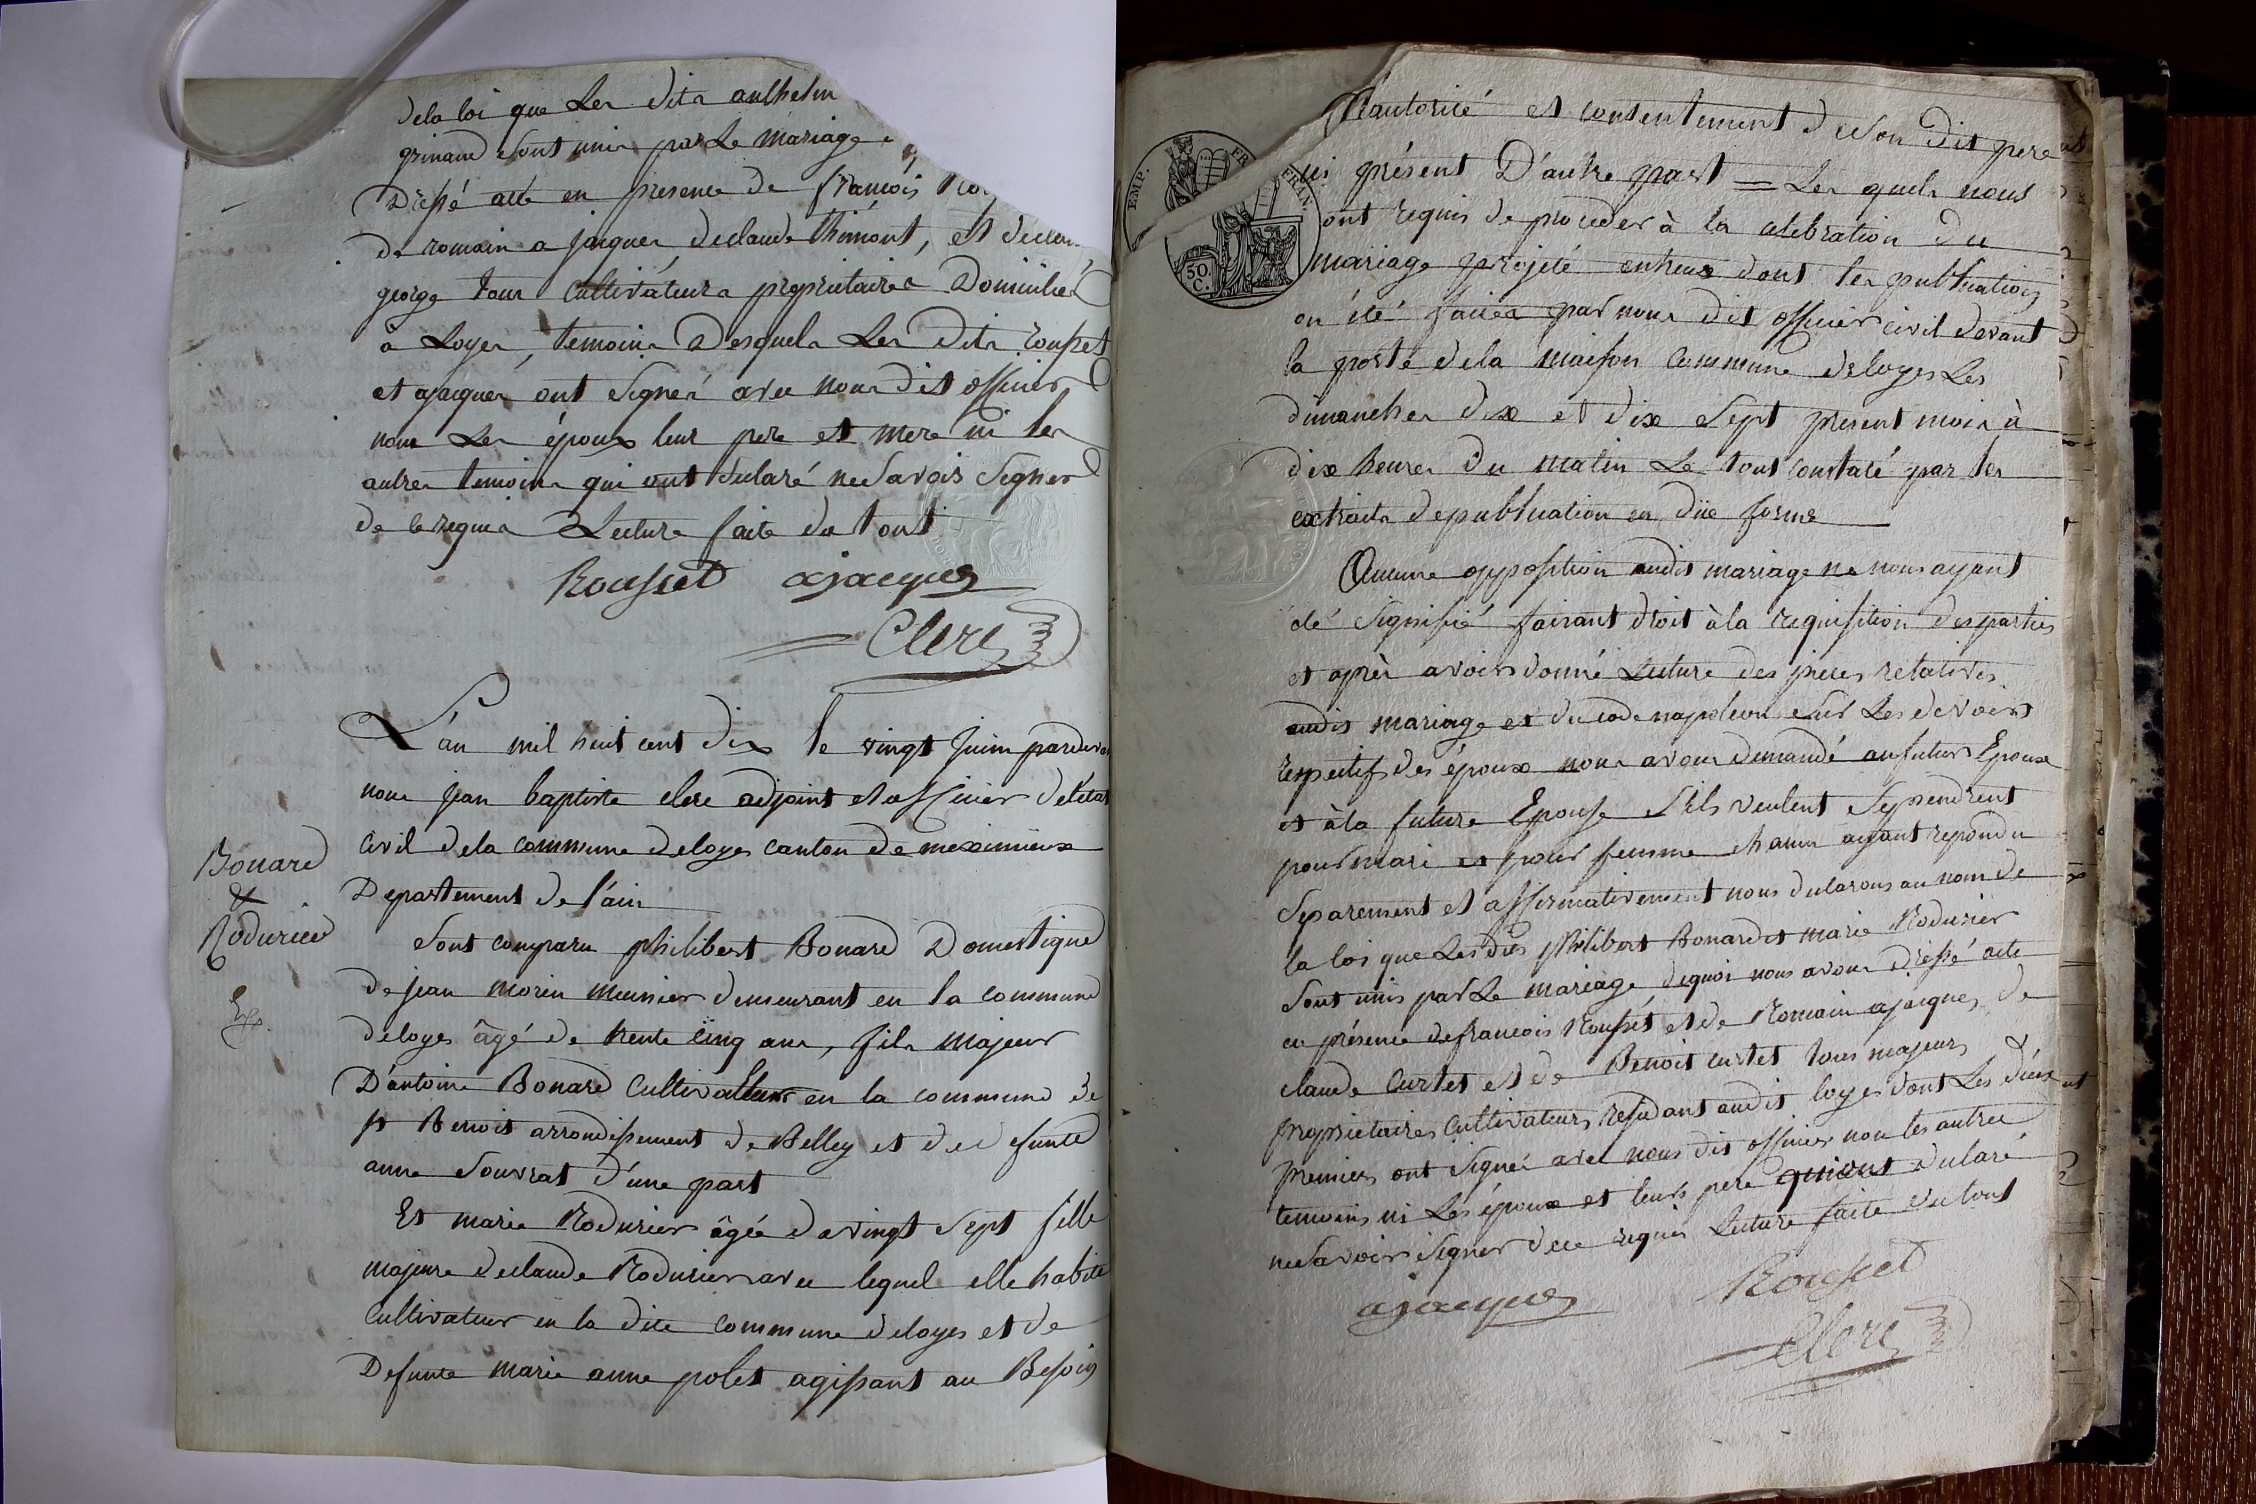 dela loi que Les dits anthelm
grinand sont unis par Le mariage
Dressé acte en presence de françois
de romain ajacques, declaude thimont, et declau
george tous cultivateurs proprietaires Domiciliés
à Loyes, temoins Desquels Les Dits rousset
et ajacques ont signer avec nous dit officier
non Les époux leur pere et mere ni les
autres temoins qui ont declaré ne savoir signer
de ce requis Lecture faite du tout
Rousset ajacques
Clerc
Bonard
&
Rodurier
L'an mil huit cent dix le vingt Juin pardev
nous jean baptiste clerc adjoint et officier deléta
civil dela commune deloyes canton de meximieux
Departement de l'ain
sont comparu philibert Bonard Domestique
de jean morin meunier demeurant en la commune
deloyes âgé de trente cinq ans, fils majeur
D'antoine Bonard cultivateur en la commune de
st Benoit arrondissement de Belley et de defunte
anne souvrat d'une part
Et marie Rodurier âgée de vingt sept fille
majeure declaude Rodurier avec lequel elle habite
cultivateur en la dite commune deloyes et de
Defunte marie anne polet agissant au Besoin
EMP. FRAN.
50. C.
l'autorité et consentement deson dit pere
ici présent D'autre part = Les quels nous
ont requis de proceder à la celebration du
mariage projeté entreux dont les publications
on été faites par nous dit officier civil devant
la porte dela maison commune deloyes Les
dimanches dix et dix sept present mois à
dix heures du matin Le tout constaté par les
extraits depublication en düe forme
Aucune opposition audit mariage ne nous ayant
été signifié faisant droit àla requisition des parties
et après avoir donné Lecture des pieces relatives
audit mariage et du code napoleon sur Les devoirs
respectifs des époux nous avons demandé aufutur Epoux
et àla future Epouse s'ils veulent se prendrent
pour mari et pour femme chacun ayant repondu
separement et affirmativement nous declarons au nom de
la loi que Les dits philibert Bonard et marie Rodurier
sont unis par Le mariage dequoi nous avons dressé acte
en présence de francois Rousset et de Romain ajacques, de
claude Curtet et de Benoit curtet tous majeurs &
proprietaires cultivateurs residants audit loyes dont Les deux
premiers ont signé avec nous dit officier non les autres
temoins ni Les époux et leurs pere qui ont declaré
ne savoir signer de ce requis Lecture faite du tout
ajacques Rousset
Clerc